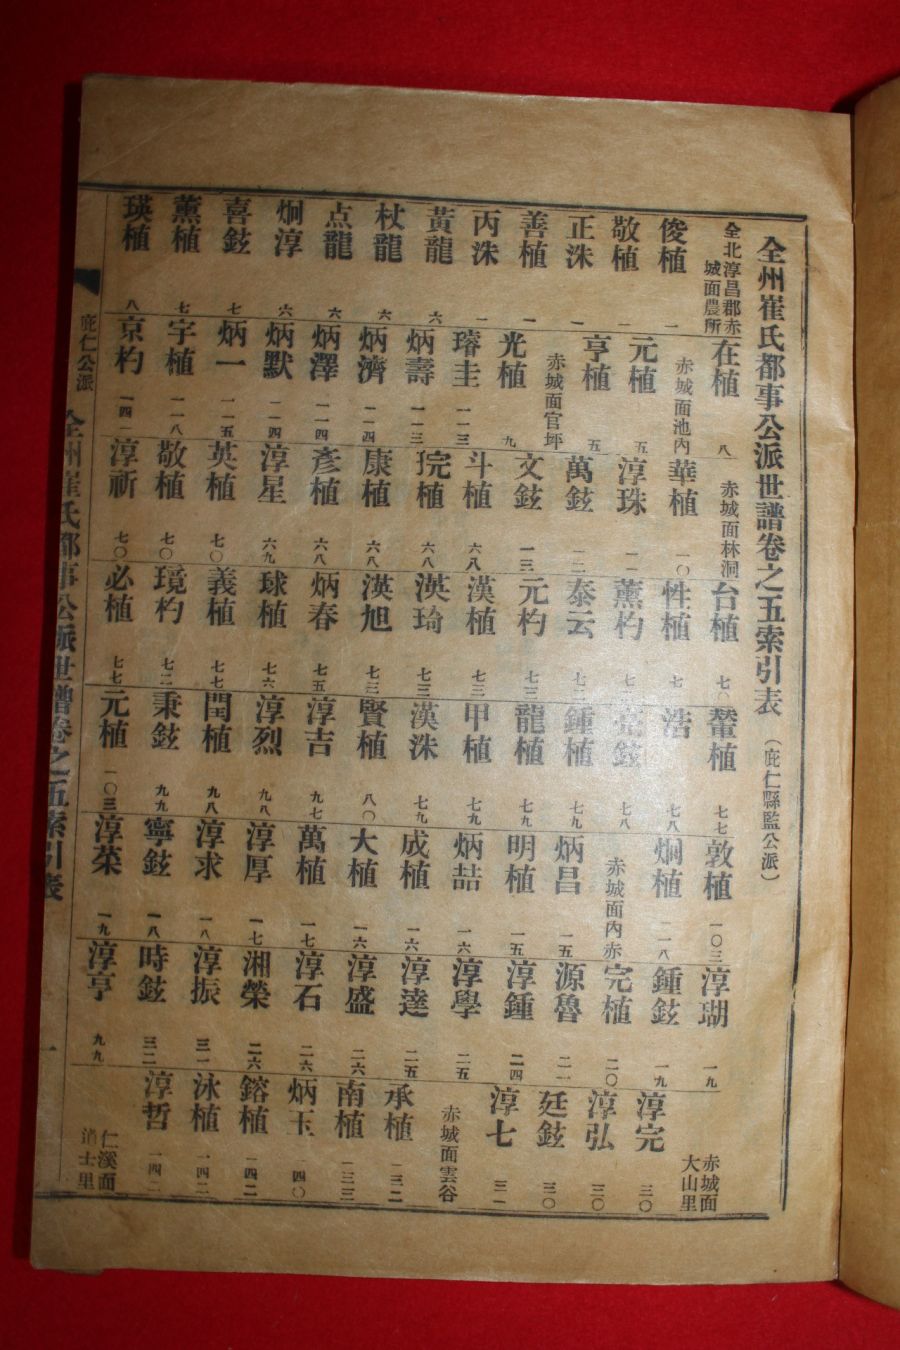 全州崔氏都事公派世譜卷之五索引表（庇仁縣監公派）
全北淳昌郡赤城面農所
俊植 一
敬植 一
正洙 一
善植 一
丙洙 一
黃龍 六
杖龍 六
点龍 六
炯淳 六
喜鉉 七
薰植 七
瑛植 八
在植 八
赤城面池內
元植 五
亨植 五
赤城面官坪
光植 九
璿圭 一一三
炳壽 一一三
炳濟 一一四
炳澤 一一四
炳默 一一四
炳一 一一五
宇植 一一八
京杓 一四
赤城面林洞
華植 一〇
淳珠 一一
萬鉉 一二
文鉉 一三
斗植 六八
琓植 六八
康植 六八
彥植 六八
淳星 六九
英植 七〇
敬植 七〇
淳祈 七〇
台植 七〇
性植 七
薰杓 七
泰云 七二
元杓 七三
漢植 七三
渶琦 七三
渶旭 七三
炳春 七五
球植 七六
義植 七七
璄杓 七二
必植 七七
植 七七
浩 七八
鉉 七八
鍾植 七九
龍植 七九
甲植 七九
漢洙 七九
賢植 八〇
淳吉 九七
淳烈 九八
閏植 九八
秉鉉 九九
元植 一〇三
敦植 一〇三
炯植 一一八
赤城面內赤
炳昌 一五
明植 一五
炳喆 一六
成植 一六
大植 一六
萬植 一七
淳厚 一七
淳求 一八
寧鉉 一八
淳萊 一九
淳瑚 一九
鍾鉉 一九
完植 二〇
源魯 二一
淳鍾 二四
淳學 二五
淳達 二五
淳盛 二六
淳石 二六
湘榮 二六
淳振 三一
時鉉 三二
淳亨 九九
赤城面大山里
淳完 三〇
淳弘 三〇
廷鉉 三〇
淳七 三一
赤城面雲谷
承植 一三二
南植 一三三
炳玉 一四〇
鎔植 一四二
泳植 一四二
淳哲 一四二
仁溪面道士里
庇仁公派 全州崔氏都事公派世譜卷之五索引表 一